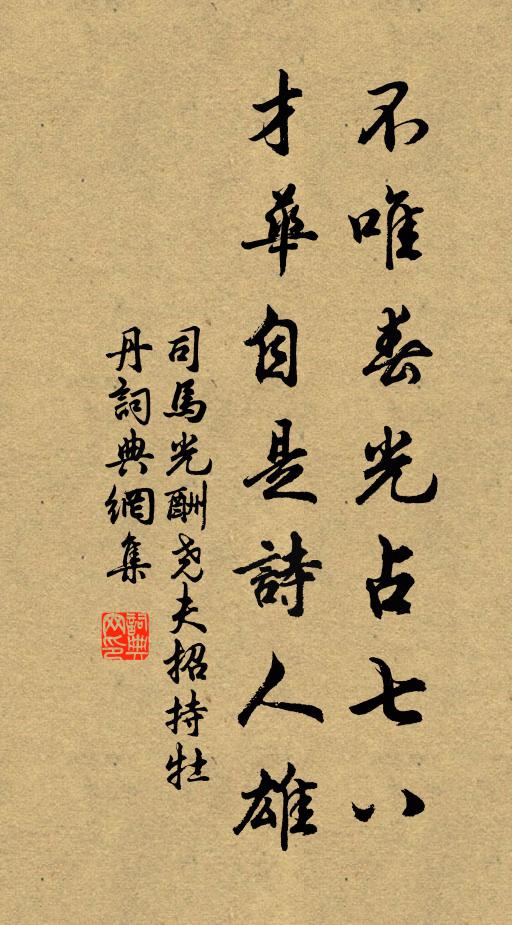 不唯春光占七八
才華自是詩人雄
司馬光酬尧夫招持牡
丹詞典網集
詞典
网印